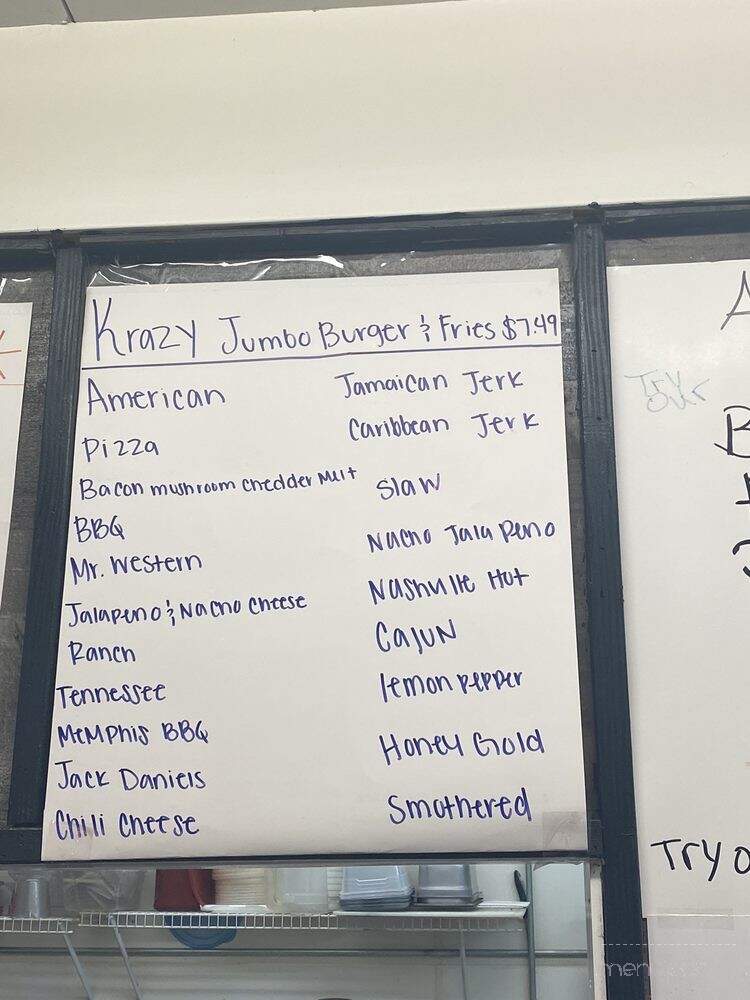 Krazy Jumbo Burger & Fries $7.49
American
Pizza
Bacon mushroom chedder Melt
BBQ
Mr. Western
Jalapeno & Nacho Cheese
Ranch
Tennessee
Memphis BBQ
Jack Daniels
Chili Cheese
Jamaican Jerk
Caribbean Jerk
Slaw
Nacho Jalapeno
Nashville Hot
Cajun
lemon pepper
Honey Gold
Smothered
Try
Our
Try